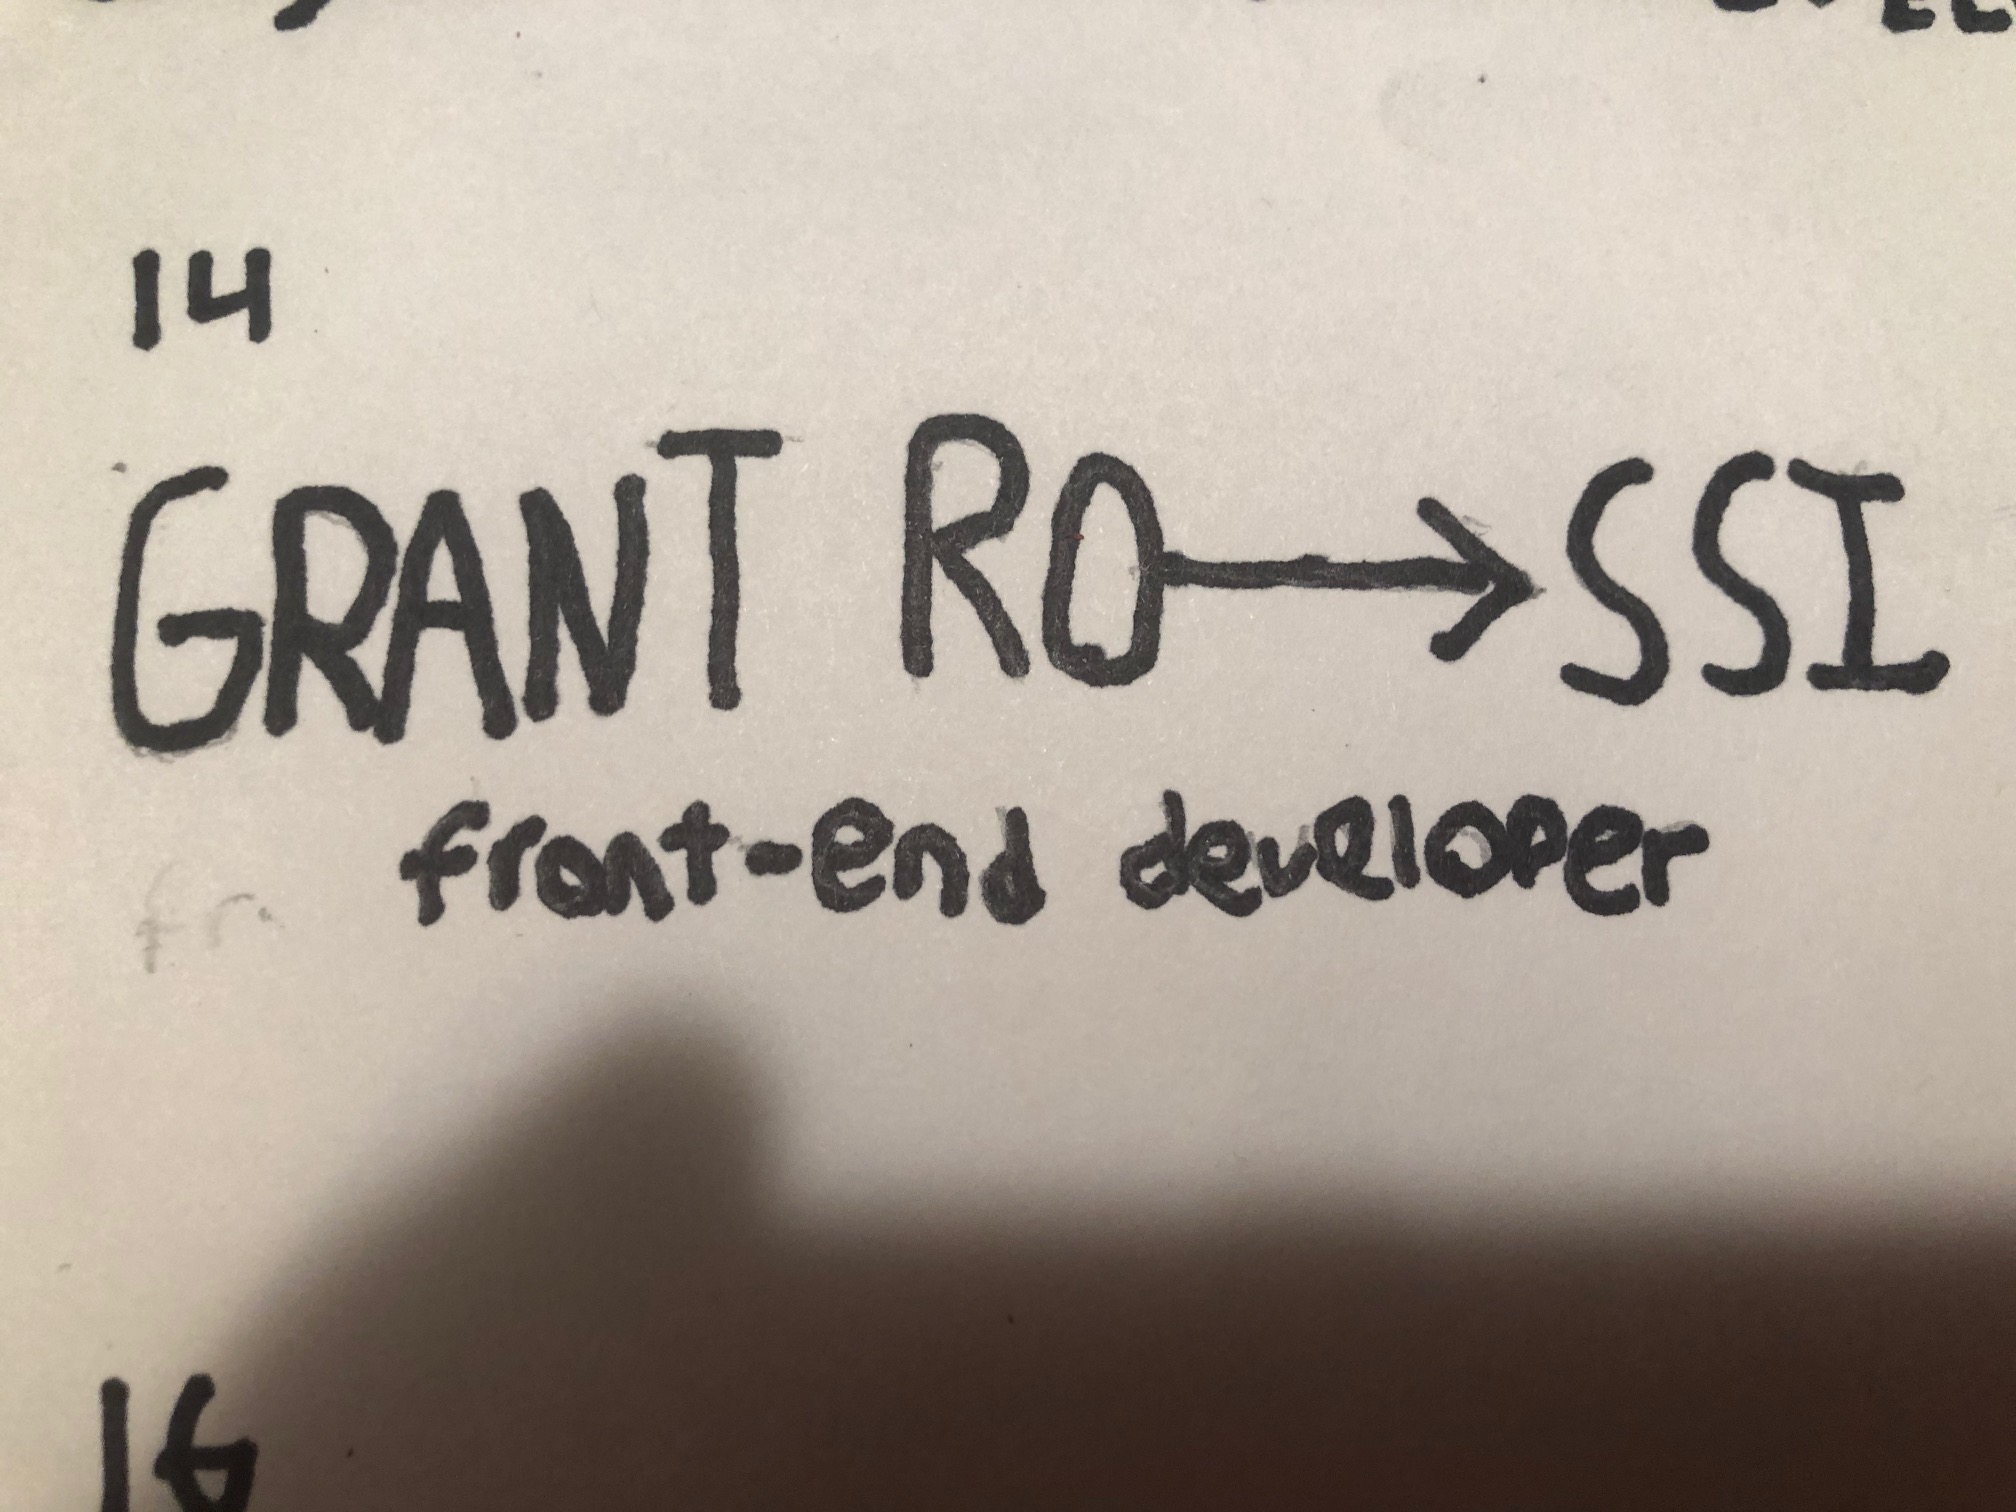 14
GRANT RO→SSI
front-end developer